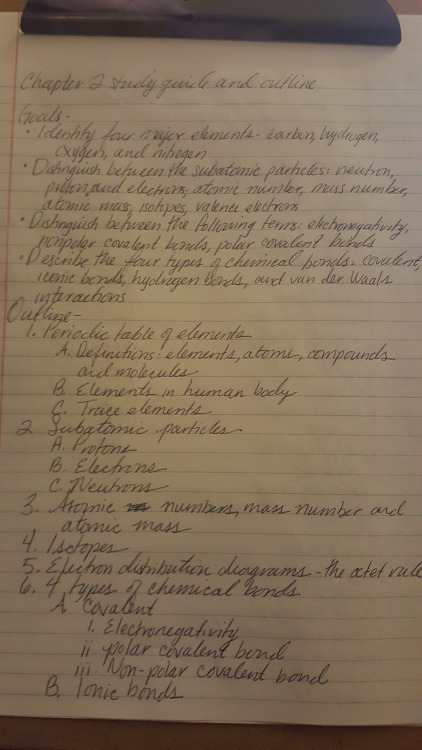 Chapter 2 study guide and outline
Goals-
• Identify four major elements- carbon, hydrogen,
oxygen, and nitrogen
• Distinguish between the subatomic particles: neutron,
proton, and electrons; atomic number, mass number,
atomic mass, isotopes, valence electrons
• Distinguish between the following terms: electronegativity,
nonpolar covalent bonds, polar covalent bonds
• Describe the four types of chemical bonds: covalent,
iconic bonds, hydrogen bonds, and van der Waals
interactions
Outline-
1. Periodic table of elements
A. Definitions: elements, atoms, compounds
and molecules
B. Elements in human body
C. Trace elements
2. Subatomic particles
A. Protons
B. Electrons
C. Neutrons
3. Atomic numbers, mass number and
atomic mass
4. Isotopes
5. Electron distribution diagrams - the octet rule
6. 4 types of chemical bonds
A. Covalent
i. Electronegativity
ii polar covalent bond
iii Non-polar covalent bond
B. Ionic bonds